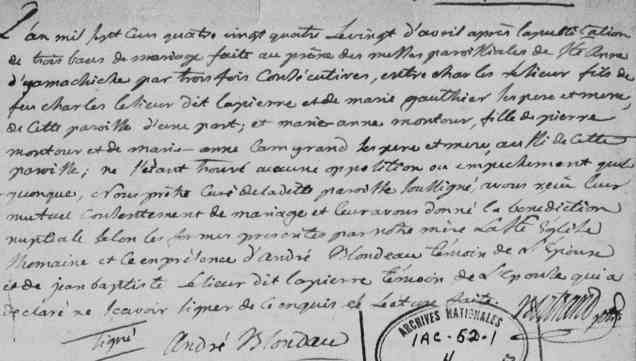 L'an mil sept cens quatre vingt quatre Le vingt d'avril après la publication
de trois bans de mariage faite au prône des messes paroissiales de Ste Anne
d'yamachiche par trois fois Consécutives, entre charles Lesieur fils de
feu charles Lesieur dit lapierre et de marie gauthier les pere et mere,
de Cette paroisse d'une part; et marie anne montour, fille de pierre
montour et de marie anne Camgrand les pere et mere aussi de Cette
paroisse; ne s'étant trouvé aucune opposition ou empechement quel
quonque, Nous prêtre Curé de ladite paroisse soussigné, avons reçu leur
mutuel Consentement de mariage et leur avons donné la benediction
nuptiale selon les formes prescrites par notre mère La Ste Eglise
Romaine et Ce en présence d'André Blondeau témoin de L'Epoux
et de jean baptiste Lesieur dit lapierre témoin de L'Epouse qui a
declaré ne scavoir signer de Ce enquis Lecture faite.
signé André Blondeau
ARCHIVES NATIONALES
IAC-52-1